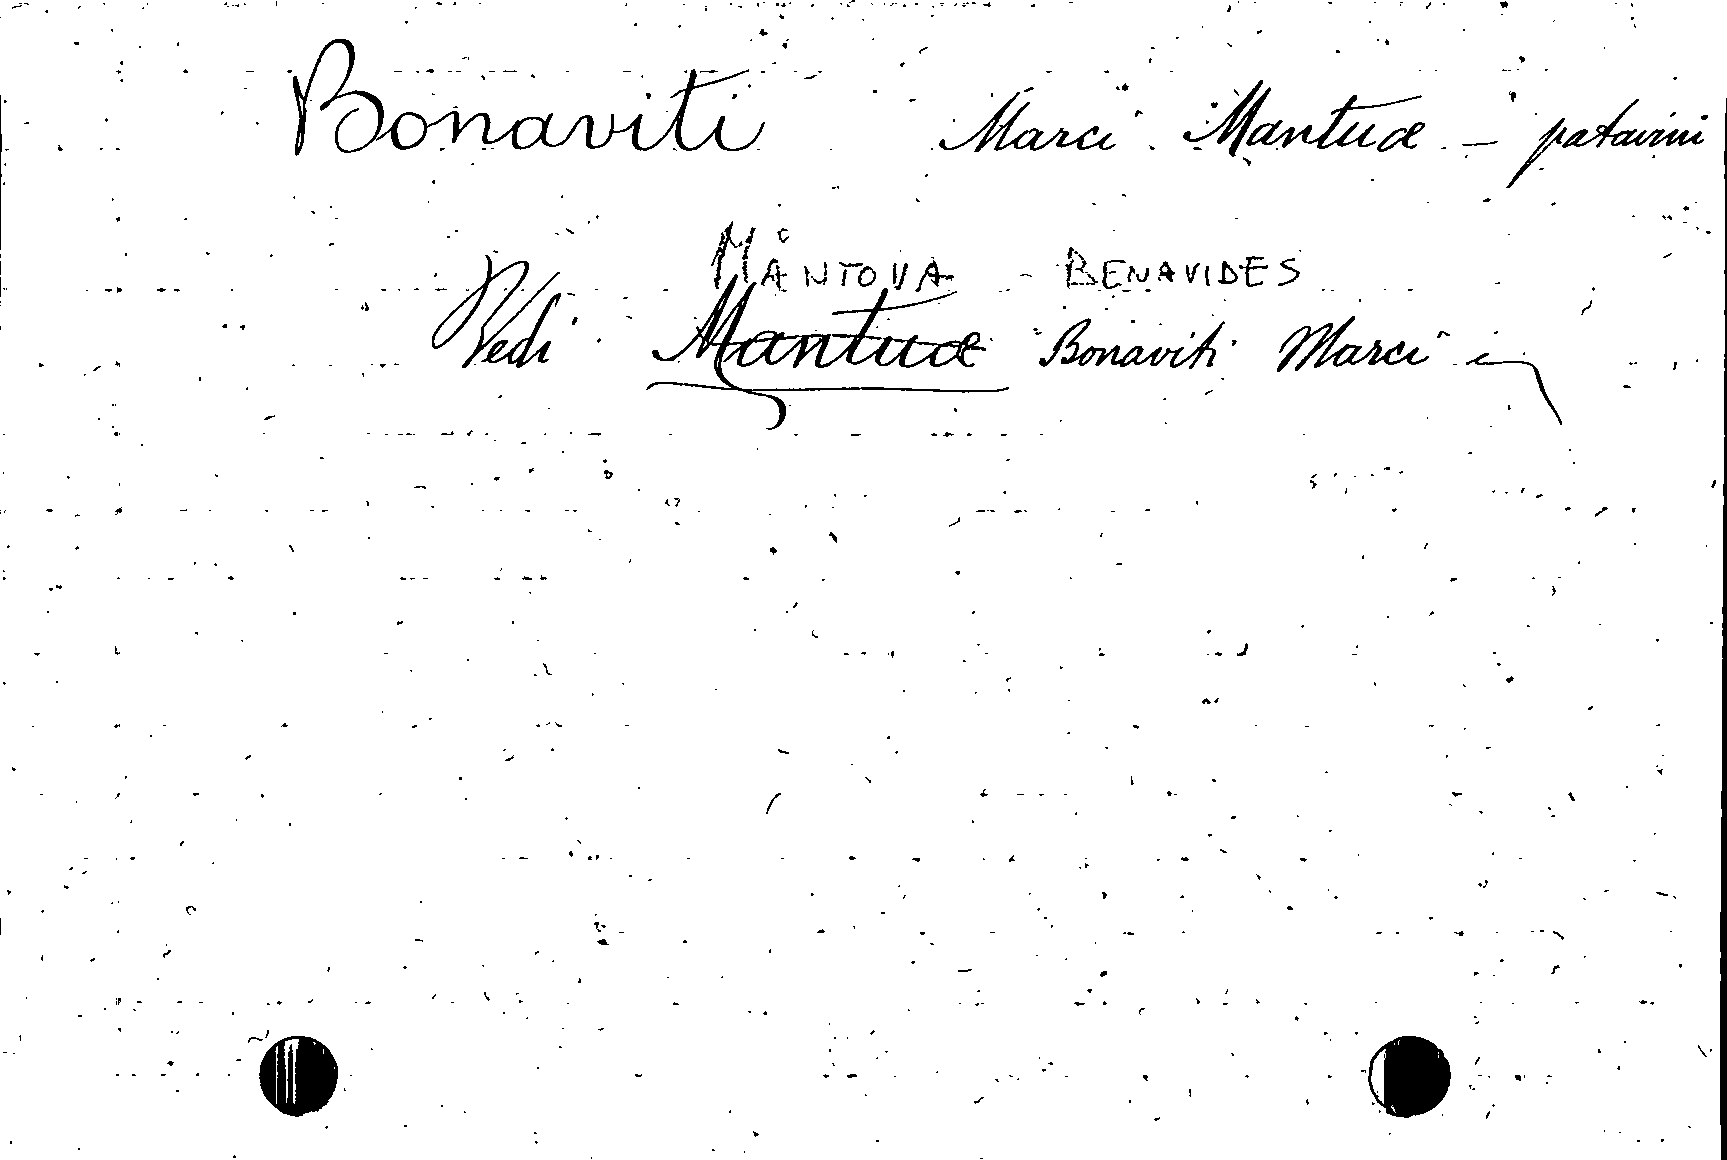 Bonaviti Marci Mantuæ - patavini
MANTOVA - BENAVIDES
Vedi Mantuæ Bonaviti Marci